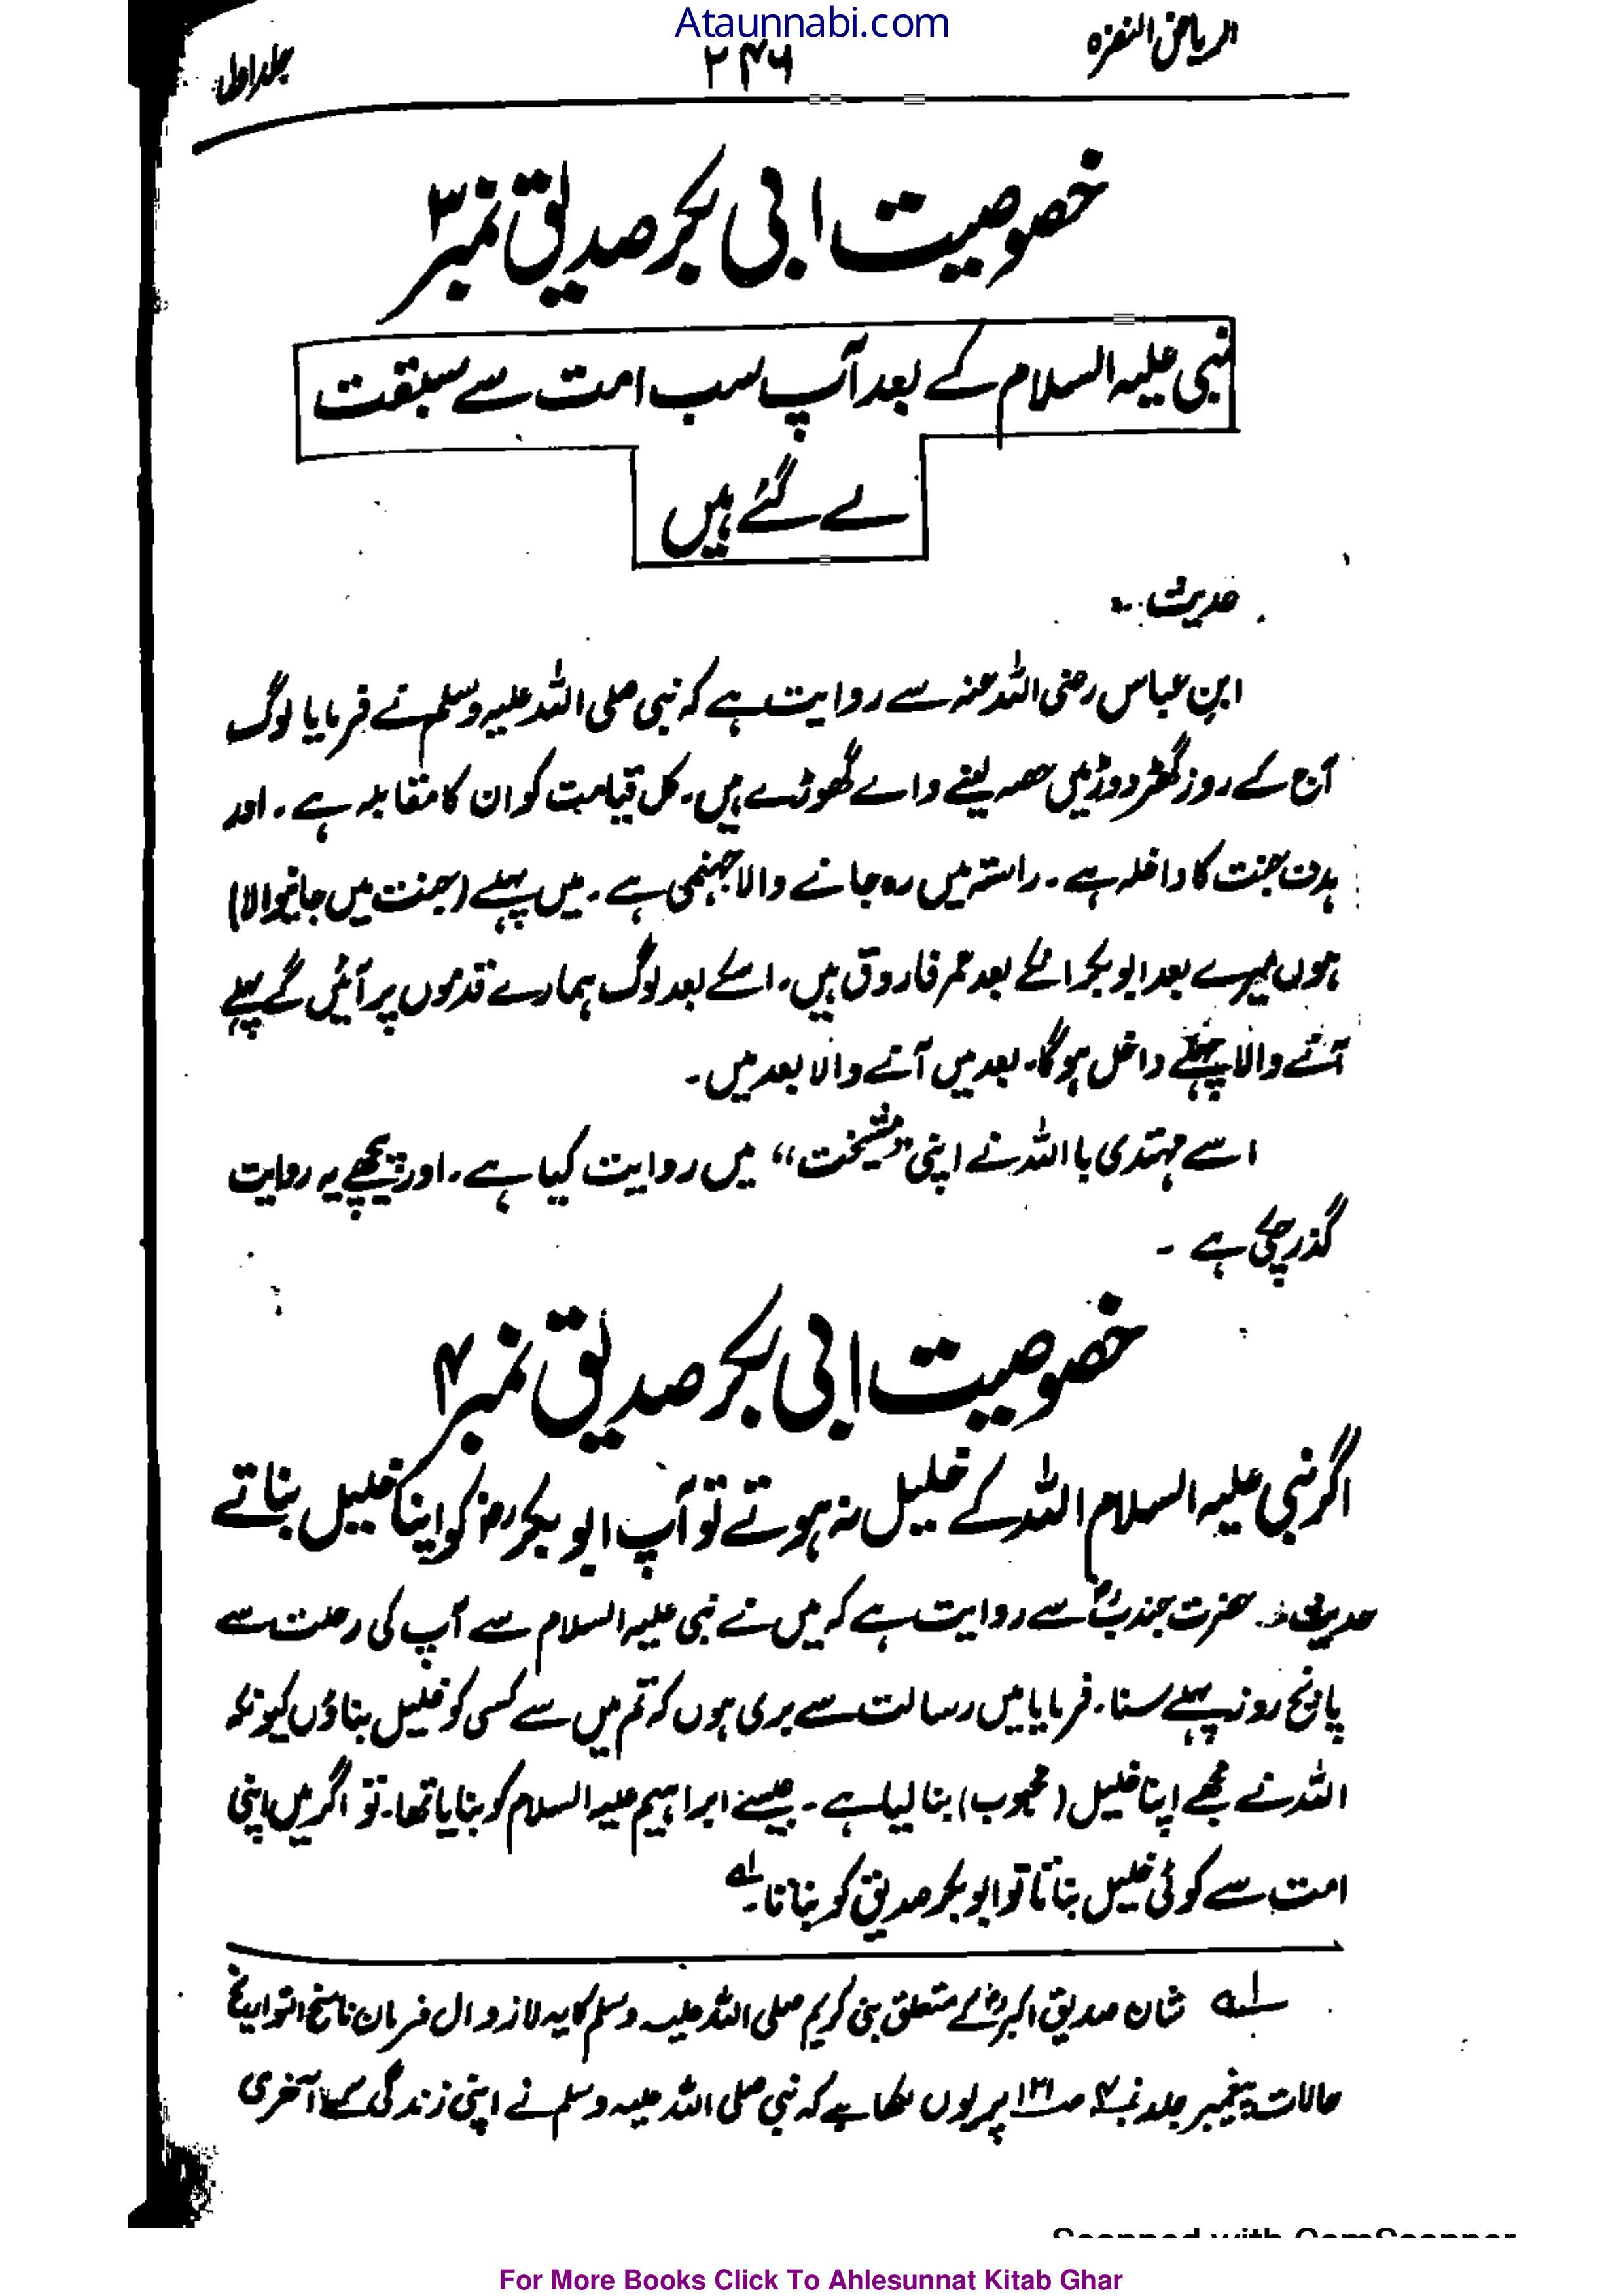 Ataunnabi.com
الریاض النضرہ ۲۴۶ جلد اول
خصوصیت ابی بکر صدیق نمبر ۳
نبی علیہ السلام کے بعد آپ سب امت سے سبقت
لے گئے ہیں
حدیث :۔
ابن عباس رضی اللہ عنہ سے روایت ہے کہ نبی صلی اللہ علیہ وسلم نے فرمایا لوگ
آج کے روز گھڑ دوڑ میں حصہ لینے والے گھوڑے ہیں۔ کل قیامت کو ان کا مقابلہ ہے۔ اور
ہدف جنت کا داخلہ ہے۔ راستہ میں رہ جانے والا جہنمی ہے۔ میں پہلے (جنت میں جانیوالا)
ہوں میرے بعد ابوبکر انکے بعد عمر فاروق ہیں۔ اسکے بعد لوگ ہمارے قدموں پر آئیں گے پہلے
آنے والا پہلے داخل ہوگا۔ بعد میں آنے والا بعد میں۔
اسے مہتدی با اللہ نے اپنی ”مشیخت“ میں روایت کیا ہے۔ اور پیچھے یہ روایت
گذر چکی ہے ۔
خصوصیت ابی بکر صدیق نمبر ۴
اگر نبی علیہ السلام اللہ کے خلیل نہ ہوتے تو آپ ابو بکر رض کو اپنا خلیل بناتے
حدیث :۔ حضرت جندب رض سے روایت ہے کہ میں نے نبی علیہ السلام سے آپ کی رحلت سے
پانچ روز پہلے سنا۔ فرمایا میں رسالت سے بری ہوں کہ تم میں سے کسی کو خلیل بناؤں کیونکہ
اللہ نے مجھے اپنا خلیل (محبوب) بنا لیا ہے ۔ جیسے ابراہیم علیہ السلام کو بنایا تھا۔ تو اگر میں اپنی
امت سے کوئی خلیل بناتا تو ابوبکر صدیق کو بناتا۔ لہ
لہ شان صدیق اکبر رض کے متعلق نبی کریم صلی اللہ علیہ وسلم کا یہ لازوال فرمان ناسخ التواریخ
حالات پیغمبر جلد نمبر ۴ ص پر یوں لکھا ہے کہ نبی صلی اللہ علیہ وسلم نے اپنی زندگی کے آخری
Scanned with CamScanner
For More Books Click To Ahlesunnat Kitab Ghar